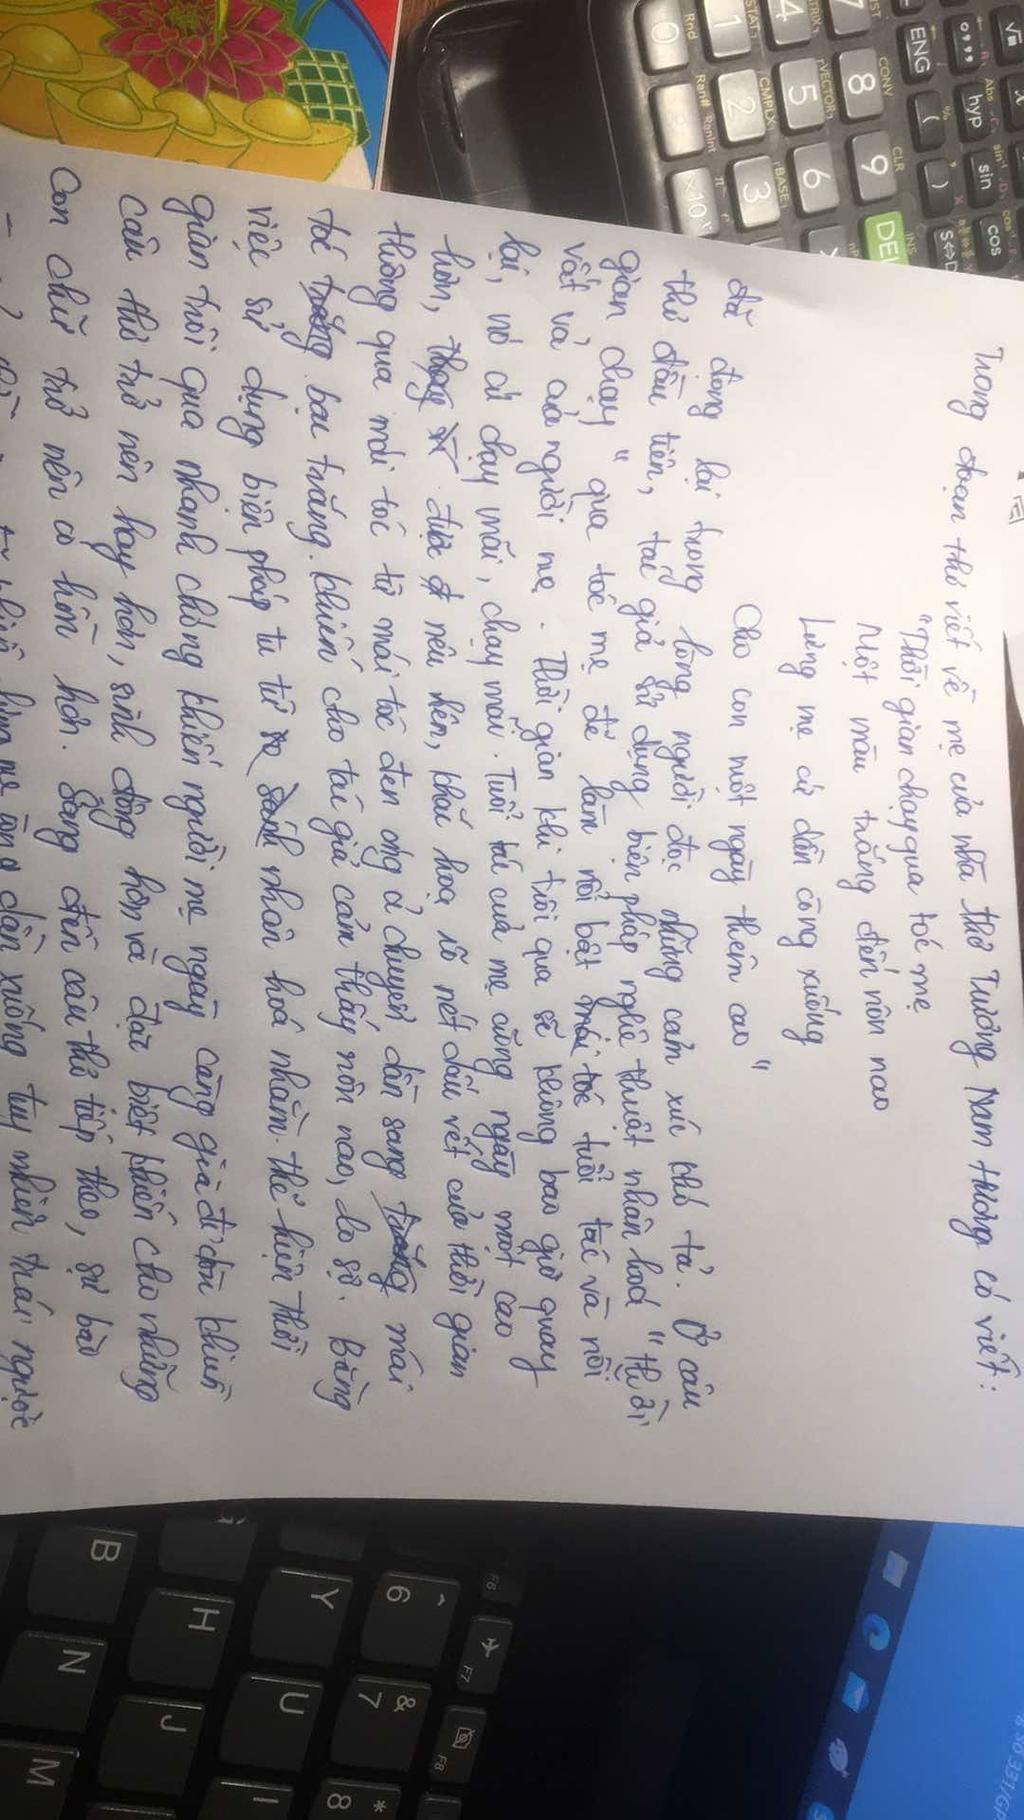 Trong đoạn thơ viết về mẹ của nhà thơ Trương Nam Hương có viết:
"Thời gian chạy qua tóc mẹ
Một màu trắng đến nôn nao
Lưng mẹ cứ dần còng xuống
Cho con một ngày thêm cao"
đã đọng lại trong lòng người đọc những cảm xúc khó tả. Ở câu
thơ đầu tiên, tác giả sử dụng biện pháp nghệ thuật nhân hoá "thời
gian chạy" qua tóc mẹ để làm nổi bật tuổi tác và nỗi
vất vả của người mẹ. Thời gian khi trôi qua sẽ không bao giờ quay
lại, nó cứ chạy mãi, chạy mãi. Tuổi tác của mẹ cũng ngày một cao
hơn, được nêu lên, khắc hoạ rõ nét dấu vết của thời gian
thông qua mái tóc từ mái tóc đen óng ả chuyển dần sang mái
tóc bạc trắng. khiến cho tác giả cảm thấy nôn nao, lo sợ. Bằng
việc sử dụng biện pháp tu từ nhân hoá nhằm thể hiện thời
gian trôi qua nhanh chóng khiến người mẹ ngày càng già đi
câu thơ trở nên hay hơn, sinh động hơn và đặc biệt khiến cho những
con chữ trở nên có hồn hơn. Sang đến câu thơ tiếp theo,
dần xuống tuy nhiên trái ngược
Rnd
Ran#
RanInt
π
0
.
×10
STAT
CMPLX
BASE
1
2
3
MATRIX
VECTOR
4
5
6
CONV
CLR
7
8
9
DEL
ENG
(
)
S⇔D
hyp
sin
cos
Abs
F6
F7
F8
^
6
&
7
*
8
Y
U
I
H
J
B
N
M